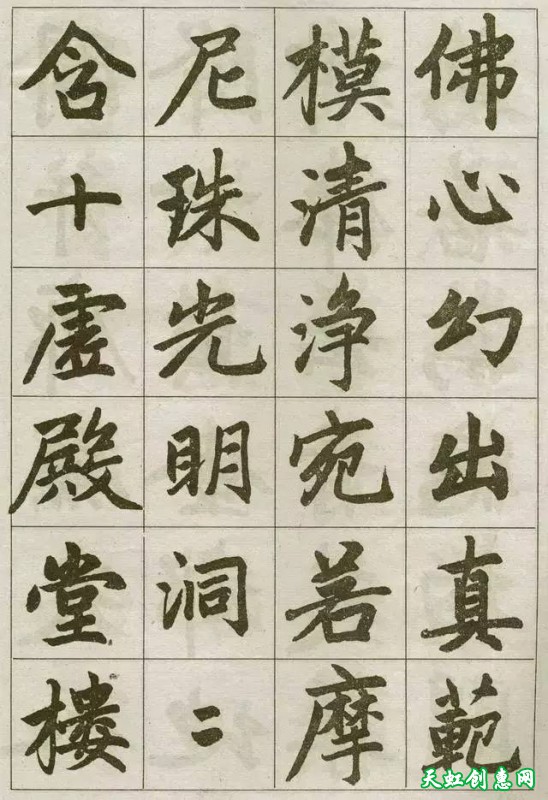 佛心幻出真範
模清淨宛若摩
尼珠光明洞二
含十虛殿堂樓
天虹创惠网